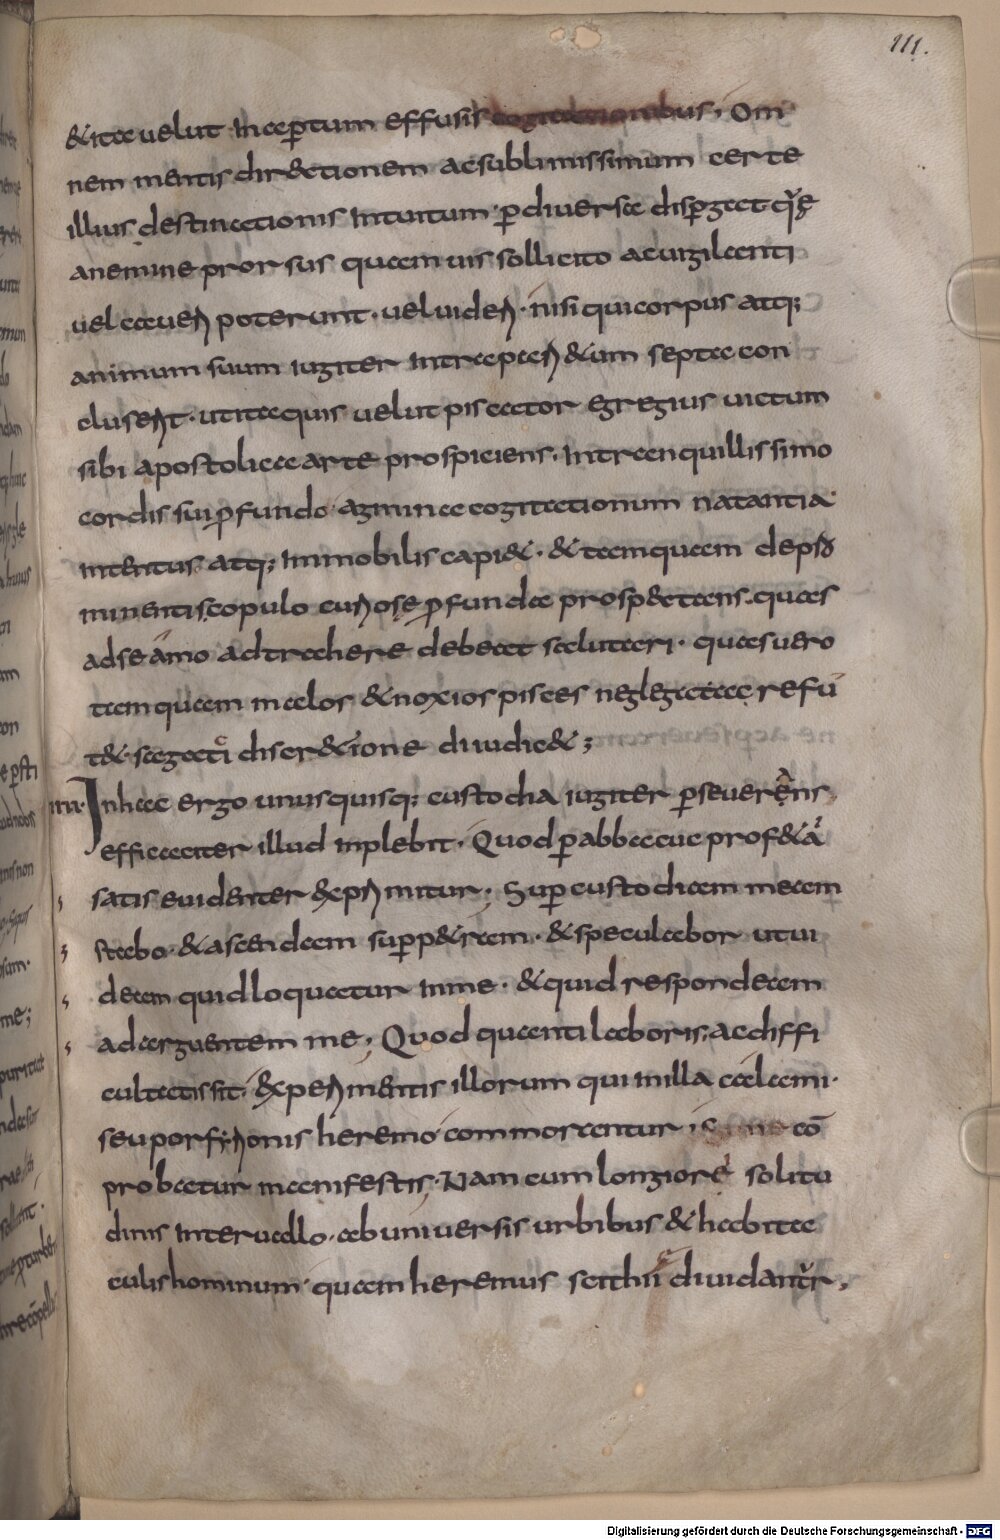 111.
& ita uelut in apertum effusis cogitationibus; Om
nem mentis dir&ctionem ac sublimissimum certe
illius destinationis intuitum· p diuersa dispgat· q̄
a nemine prorsus quam uis sollicito ac uigilanti
uel caueri poterunt· uel uideri· nisi qui corpus atq;
animum suum iugiter intra pari&um septa con
cluserit· ut ita quis uelut piscator egregius uictum
sibi apostolica arte prospiciens· in tranquillissimo
cordis sui pfundo· agmina cogitationum natantia·
intentus atq; immobilis capi&· & tamquam de
minenti scopulo curiose pfunda prosp&tans· quas
ad se amo adtrahere debeat salutari· quas uero
tamquam malos & noxios pisces neglegat ac refu
t&· sagaci discr&ione diiudic&;
IIII· In hac ergo unusquisq; custodia iugiter pseuerans
efficaciter illud inplebit· Quod p abbacuc prof&ā
satis euidenter exprimitur; Sup custodiam meam
stabo· & ascendam sup p&ram· & speculabor ut ui
deam quid loquatur in me· & quid respondeam
ad arguentem me; Quod quanti laboris, ac diffi
cultatis sit· experimentis illorum qui in illa calami·
seu porfyrionis heremo commorantur co͞
probatur manifestis· Nam cum longiore solitu
dinis interuallo· ab uniuersis urbibus & habita
culis hominum· quam heremus scithii diuidantur,